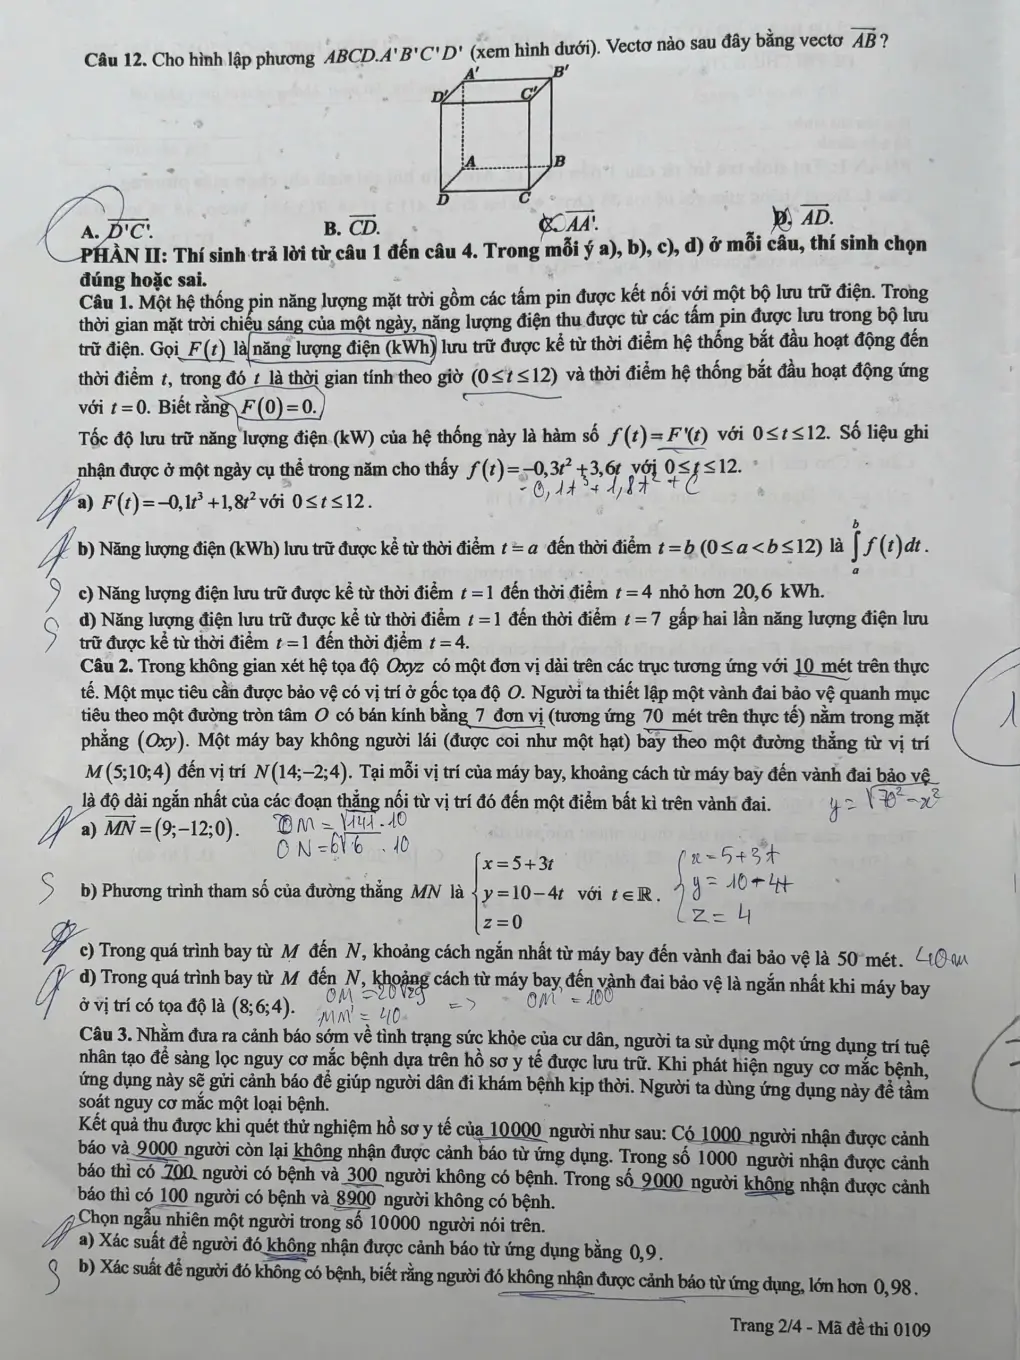 Câu 12. Cho hình lập phương ABCD.A'B'C'D' (xem hình dưới). Vectơ nào sau đây bằng vectơ $\overrightarrow{AB}$?
A' B'
D' C'
A B
D C
A. $\overrightarrow{D'C'}$. B. $\overrightarrow{CD}$. C. $\overrightarrow{AA'}$. D. $\overrightarrow{AD}$.
PHẦN II: Thí sinh trả lời từ câu 1 đến câu 4. Trong mỗi ý a), b), c), d) ở mỗi câu, thí sinh chọn
đúng hoặc sai.
Câu 1. Một hệ thống pin năng lượng mặt trời gồm các tấm pin được kết nối với một bộ lưu trữ điện. Trong
thời gian mặt trời chiếu sáng của một ngày, năng lượng điện thu được từ các tấm pin được lưu trong bộ lưu
trữ điện. Gọi F(t) là năng lượng điện (kWh) lưu trữ được kể từ thời điểm hệ thống bắt đầu hoạt động đến
thời điểm t, trong đó t là thời gian tính theo giờ (0≤t≤12) và thời điểm hệ thống bắt đầu hoạt động ứng
với t=0. Biết rằng F(0)=0.
Tốc độ lưu trữ năng lượng điện (kW) của hệ thống này là hàm số f(t)=F'(t) với 0≤t≤12. Số liệu ghi
nhận được ở một ngày cụ thể trong năm cho thấy f(t)=–0,3t²+3,6t với 0≤t≤12.
-0,1t³+1,8t²+C
a) F(t)=–0,1t³+1,8t² với 0≤t≤12.
Đ
b) Năng lượng điện (kWh) lưu trữ được kể từ thời điểm t=a đến thời điểm t=b (0≤a<b≤12) là $\int_a^b f(t)dt$.
Đ
S c) Năng lượng điện lưu trữ được kể từ thời điểm t=1 đến thời điểm t=4 nhỏ hơn 20,6 kWh.
S d) Năng lượng điện lưu trữ được kể từ thời điểm t=1 đến thời điểm t=7 gấp hai lần năng lượng điện lưu
trữ được kể từ thời điểm t=1 đến thời điểm t=4.
Câu 2. Trong không gian xét hệ tọa độ Oxyz có một đơn vị dài trên các trục tương ứng với 10 mét trên thực
tế. Một mục tiêu cần được bảo vệ có vị trí ở gốc tọa độ O. Người ta thiết lập một vành đai bảo vệ quanh mục
tiêu theo một đường tròn tâm O có bán kính bằng 7 đơn vị (tương ứng 70 mét trên thực tế) nằm trong mặt
phẳng (Oxy). Một máy bay không người lái (được coi như một hạt) bay theo một đường thẳng từ vị trí
M(5;10;4) đến vị trí N(14;–2;4). Tại mỗi vị trí của máy bay, khoảng cách từ máy bay đến vành đai bảo vệ
là độ dài ngắn nhất của các đoạn thẳng nối từ vị trí đó đến một điểm bất kì trên vành đai. y=√70²-x²
a) $\overrightarrow{MN}$=(9;–12;0). OM=√141.10
ON=6√6.10
S b) Phương trình tham số của đường thẳng MN là { x=5+3t; y=10–4t; z=0 với t∈ℝ. { x=5+3t; y=10-4t; z=4
c) Trong quá trình bay từ M đến N, khoảng cách ngắn nhất từ máy bay đến vành đai bảo vệ là 50 mét. 40m
d) Trong quá trình bay từ M đến N, khoảng cách từ máy bay đến vành đai bảo vệ là ngắn nhất khi máy bay
ở vị trí có tọa độ là (8;6;4). OM'=20√29 => OM'=100
MM'=40
Câu 3. Nhằm đưa ra cảnh báo sớm về tình trạng sức khỏe của cư dân, người ta sử dụng một ứng dụng trí tuệ
nhân tạo để sàng lọc nguy cơ mắc bệnh dựa trên hồ sơ y tế được lưu trữ. Khi phát hiện nguy cơ mắc bệnh,
ứng dụng này sẽ gửi cảnh báo để giúp người dân đi khám bệnh kịp thời. Người ta dùng ứng dụng này để tầm
soát nguy cơ mắc một loại bệnh.
Kết quả thu được khi quét thử nghiệm hồ sơ y tế của 10000 người như sau: Có 1000 người nhận được cảnh
báo và 9000 người còn lại không nhận được cảnh báo từ ứng dụng. Trong số 1000 người nhận được cảnh
báo thì có 700 người có bệnh và 300 người không có bệnh. Trong số 9000 người không nhận được cảnh
báo thì có 100 người có bệnh và 8900 người không có bệnh.
Chọn ngẫu nhiên một người trong số 10000 người nói trên.
Đ a) Xác suất để người đó không nhận được cảnh báo từ ứng dụng bằng 0,9.
S b) Xác suất để người đó không có bệnh, biết rằng người đó không nhận được cảnh báo từ ứng dụng, lớn hơn 0,98.
Trang 2/4 - Mã đề thi 0109